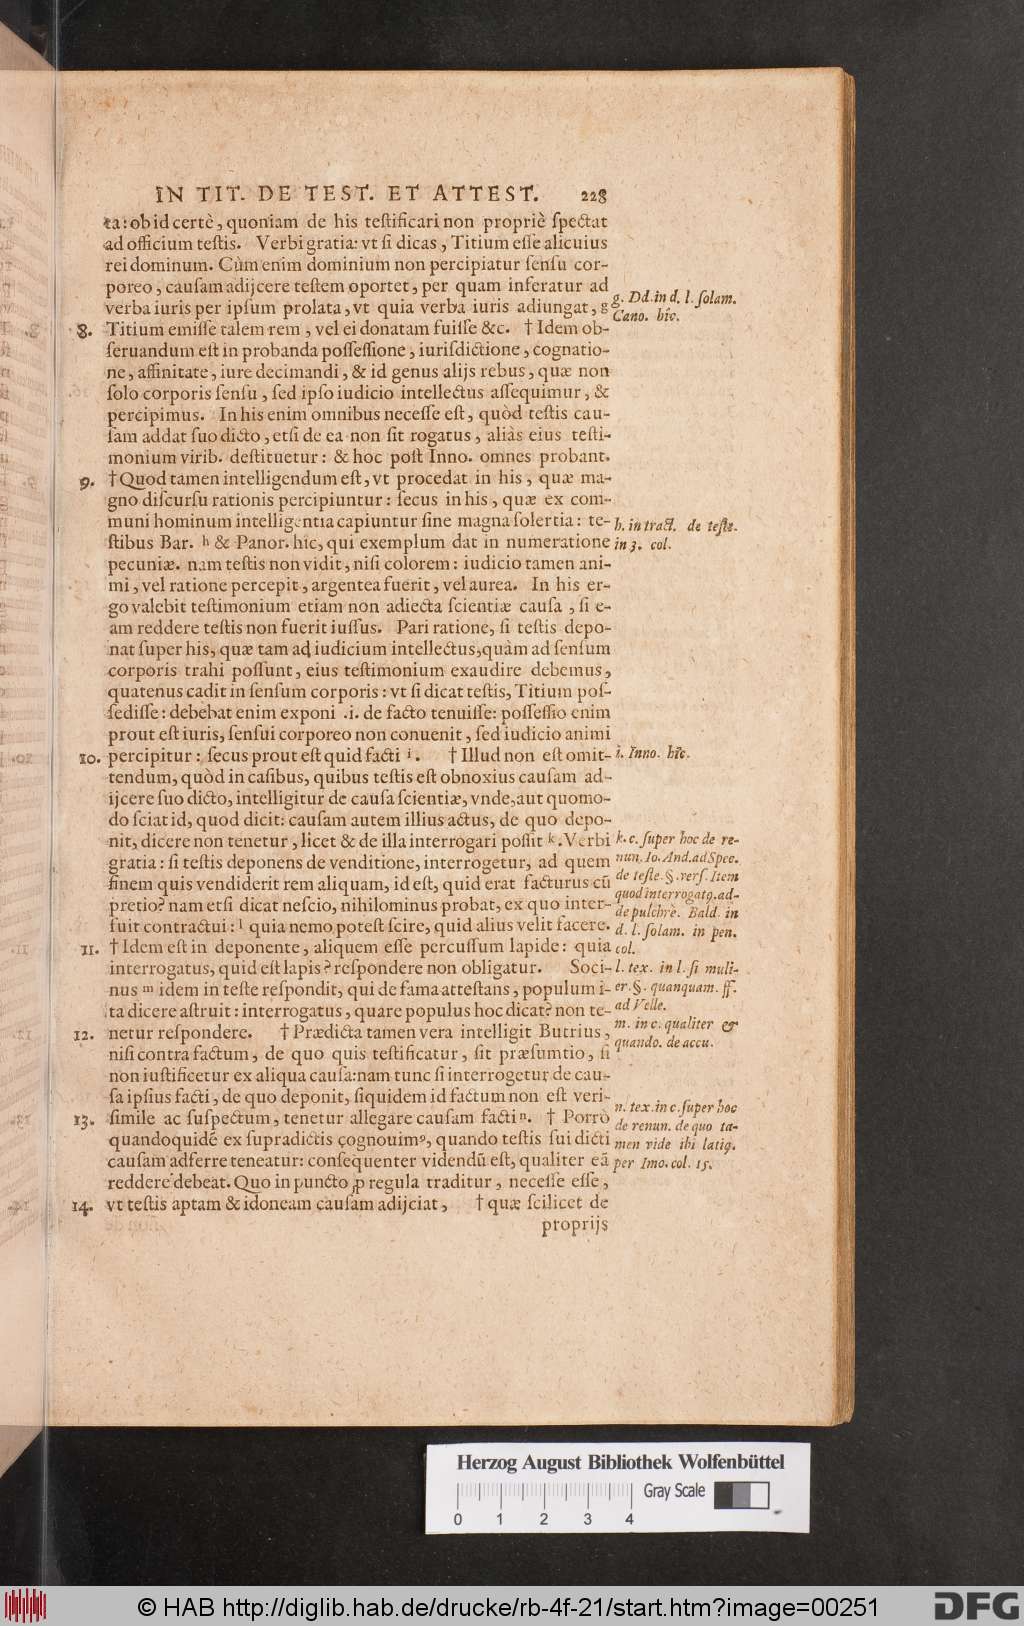 IN TIT. DE TEST. ET ATTEST. 228
ta: ob id certè, quoniam de his teſtificari non propriè ſpectat
ad officium teſtis. Verbi gratia: vt ſi dicas, Titium eſſe alicuius
rei dominum. Cùm enim dominium non percipiatur ſenſu cor-
poreo, cauſam adijcere teſtem oportet, per quam inferatur ad
verba iuris per ipſum prolata, vt quia verba iuris adiungat, g
g. Dd. in d. l. ſolam.
Cano. hîc.
8. Titium emiſſe talem rem, vel ei donatam fuiſſe &c. † Idem ob-
ſeruandum eſt in probanda poſſeſſione, iuriſdictione, cognatio-
ne, affinitate, iure decimandi, & id genus alijs rebus, quæ non
ſolo corporis ſenſu, ſed ipſo iudicio intellectus aſſequimur, &
percipimus. In his enim omnibus neceſſe eſt, quòd teſtis cau-
ſam addat ſuo dicto, etſi de ea non ſit rogatus, aliàs eius teſti-
monium virib. deſtituetur: & hoc poſt Inno. omnes probant.
9. † Quod tamen intelligendum eſt, vt procedat in his, quæ ma-
gno diſcurſu rationis percipiuntur: ſecus in his, quæ ex com-
muni hominum intelligentia capiuntur ſine magna ſolertia: te-
ſtibus Bar. h & Panor. hîc, qui exemplum dat in numeratione
h. in tract. de teſte.
in 3. col.
pecuniæ. nam teſtis non vidit, niſi colorem: iudicio tamen ani-
mi, vel ratione percepit, argentea fuerit, vel aurea. In his er-
go valebit teſtimonium etiam non adiecta ſcientiæ cauſa, ſi e-
am reddere teſtis non fuerit iuſſus. Pari ratione, ſi teſtis depo-
nat ſuper his, quæ tam ad iudicium intellectus, quàm ad ſenſum
corporis trahi poſſunt, eius teſtimonium exaudire debemus,
quatenus cadit in ſenſum corporis: vt ſi dicat teſtis, Titium poſ-
ſediſſe: debebat enim exponi .i. de facto tenuiſſe: poſſeſſio enim
prout eſt iuris, ſenſui corporeo non conuenit, ſed iudicio animi
10. percipitur: ſecus prout eſt quid facti i. † Illud non eſt omit-
i. Inno. hîc.
tendum, quòd in caſibus, quibus teſtis eſt obnoxius cauſam ad-
ijcere ſuo dicto, intelligitur de cauſa ſcientiæ, vnde, aut quomo-
do ſciat id, quod dicit: cauſam autem illius actus, de quo depo-
nit, dicere non tenetur, licet & de illa interrogari poſſit k. Verbi
gratia: ſi teſtis deponens de venditione, interrogetur, ad quem
finem quis vendiderit rem aliquam, id eſt, quid erat facturus cũ
pretio? nam etſi dicat neſcio, nihilominus probat, ex quo inter-
fuit contractui: l quia nemo poteſt ſcire, quid alius velit facere.
k. c. ſuper hoc de re-
nun. Io. And. ad Spec.
de teſte. §. verſ. Item
quod interrogatq. ad-
de pulchrè. Bald. in
d. l. ſolam. in pen.
col.
11. † Idem eſt in deponente, aliquem eſſe percuſſum lapide: quia
interrogatus, quid eſt lapis? reſpondere non obligatur. Soci-
nus m idem in teſte reſpondit, qui de fama atteſtans, populum i-
ta dicere aſtruit: interrogatus, quare populus hoc dicat? non te-
l. tex. in l. ſi muli-
er. §. quanquam. ff.
ad Velle.
12. netur reſpondere. † Prædicta tamen vera intelligit Butrius,
m. in c. qualiter &
quando. de accu.
niſi contra factum, de quo quis teſtificatur, ſit præſumtio, ſi
non iuſtificetur ex aliqua cauſa: nam tunc ſi interrogetur de cau-
ſa ipſius facti, de quo deponit, ſiquidem id factum non eſt veri-
13. ſimile ac ſuſpectum, tenetur allegare cauſam facti n. † Porrò
quandoquidẽ ex ſupradictis cognouimꝰ, quando teſtis ſui dicti
cauſam adferre teneatur: conſequenter videndũ eſt, qualiter eã
n. tex. in c. ſuper hoc
de renun. de quo ta-
men vide ibi latiq.
per Imo. col. 15.
reddere debeat. Quo in puncto ꝓ regula traditur, neceſſe eſſe,
14. vt teſtis aptam & idoneam cauſam adijciat, † quæ ſcilicet de
proprijs
Herzog August Bibliothek Wolfenbüttel
Gray Scale
0 1 2 3 4
© HAB http://diglib.hab.de/drucke/rb-4f-21/start.htm?image=00251
DFG